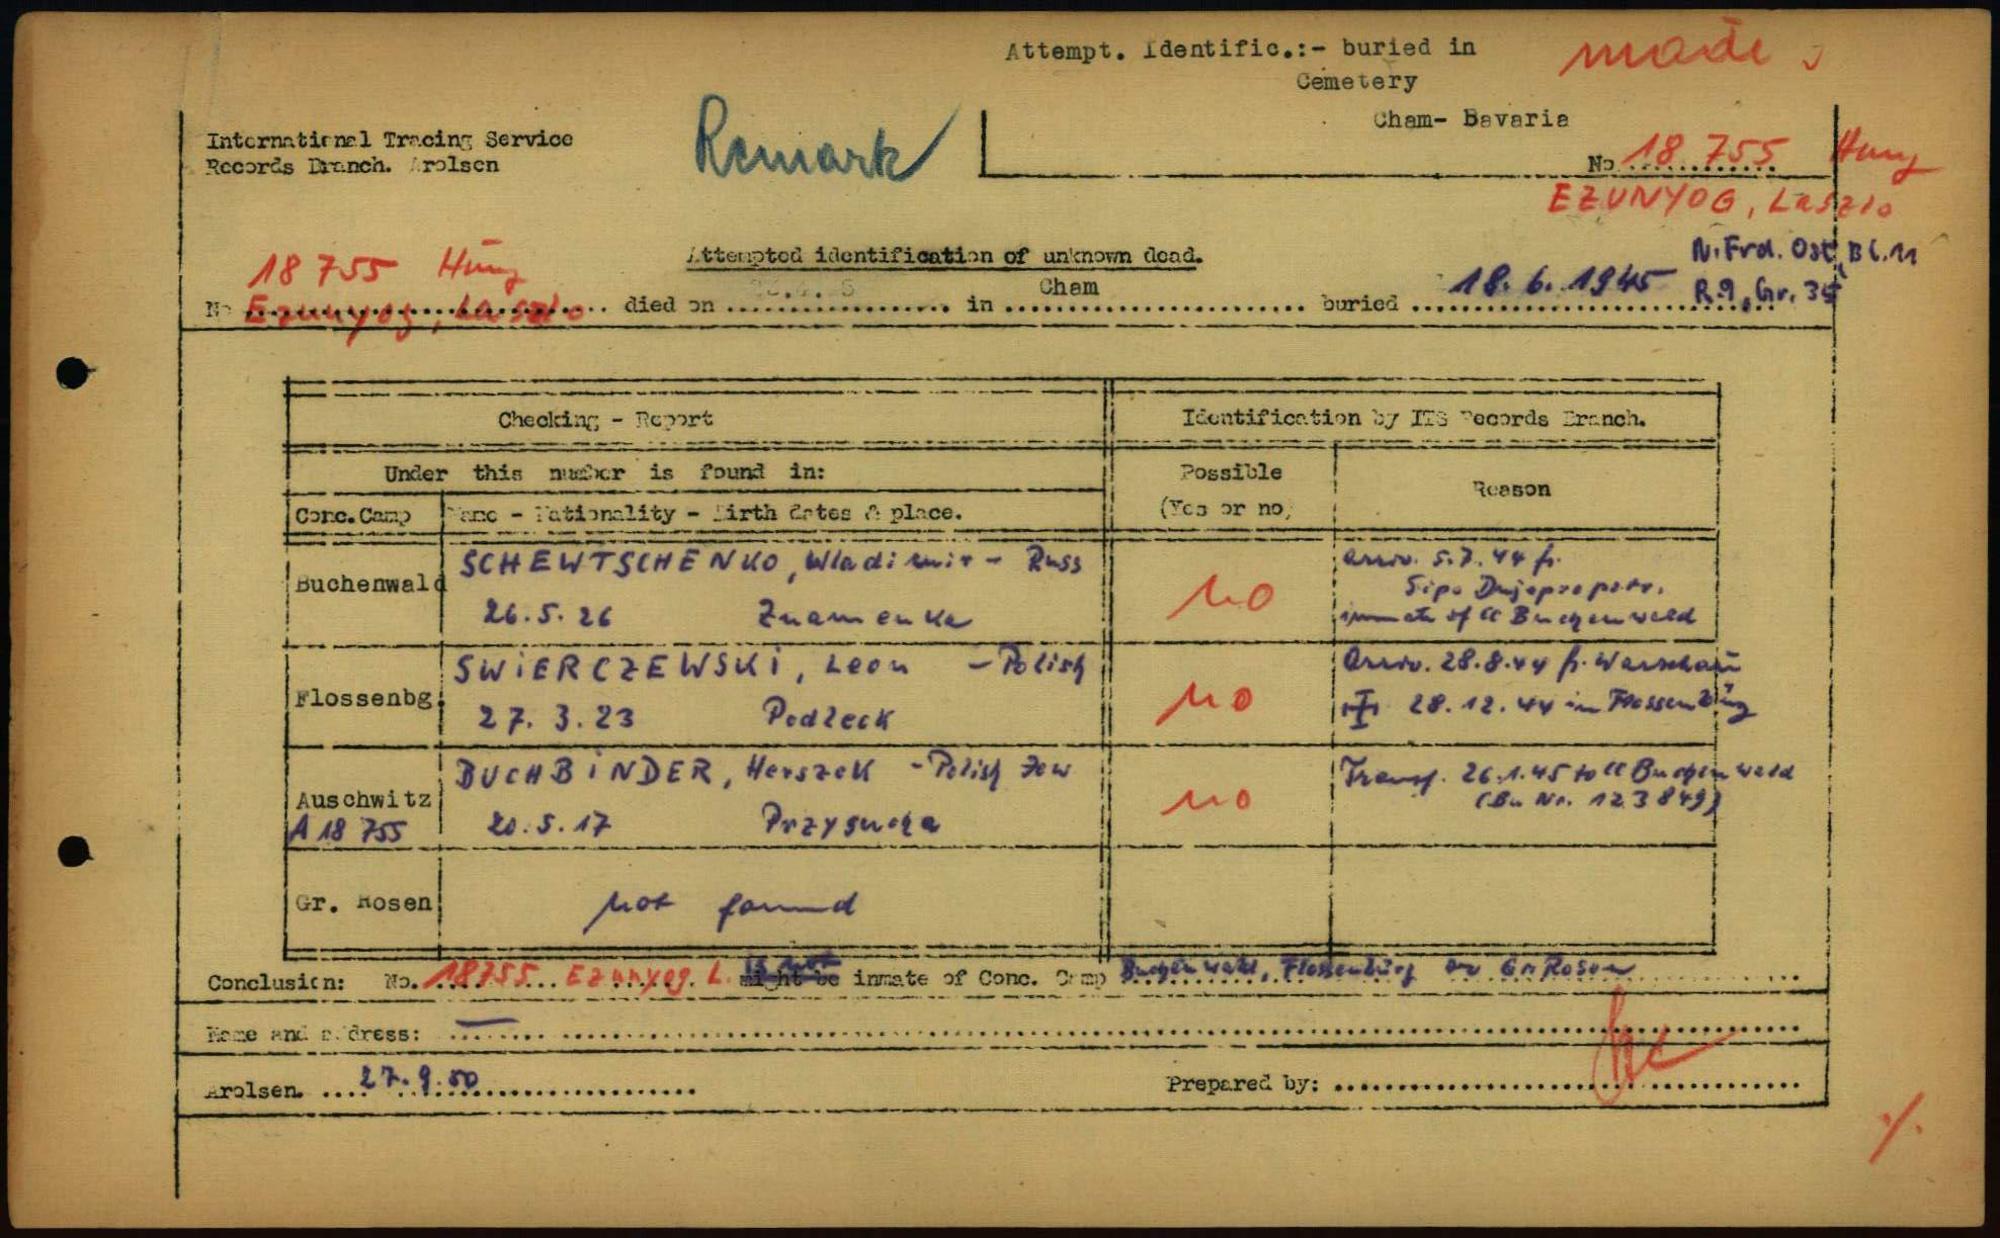 Attempt. Identific.:- buried in
Cemetery
Cham- Bavaria
Remark
International Tracing Service
Records Branch. Arolsen
No 18 755 Hung
EZUNYOG, Laszlo
Attempted identification of unknown dead.
N. Frd. Ost, Bl. 11
R. 9, Gr. 35
18 755 Hung
No Ezunyog, Laszlo died on ........ in Cham buried 18. 6. 1945
Checking - Report
Identification by ITS Records Branch.
Under this number is found in:
Possible
(Yes or no)
Reason
Conc. Camp
Name - Nationality - Birth dates & place.
Buchenwald
SCHEWTSCHENKO, Wladimir - Russ
26. 5. 26 Znamenka
no
arriv. 5. 7. 44 fr.
Sipo Dnjepropetr.
inmate of CC Buchenwald
Flossenbg.
SWIERCZEWSKI, Leon - Polish
27. 3. 23 Podleck
no
Arriv. 28. 8. 44 fr. Warschau
28. 12. 44 in Flossenbürg
Auschwitz
A 18 755
BUCHBINDER, Herszek - Polish Jew
20. 5. 17 Przysucha
no
Transf. 26. 1. 45 to CC Buchenwald
(Bu Nr. 123849)
Gr. Rosen
not found
Conclusion: No. 18755 Ezunyog L. is not might be inmate of Conc. Camp Buchenwald, Flossenbürg or Gr. Rosen
Name and address: —
Arolsen. 27. 9. 50
Prepared by: